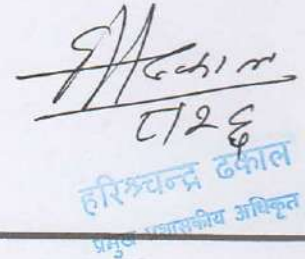 ढकाल
८।२६
हरिश्चन्द्र ढकाल
प्रमुख प्रशासकीय अधिकृत